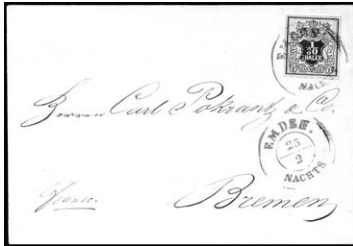 EMDEN.
1
30
THALER
NACHTS
Herren Carl Pokrantz & Co.
EMDEN.
25
2
NACHTS
franco.
Bremen